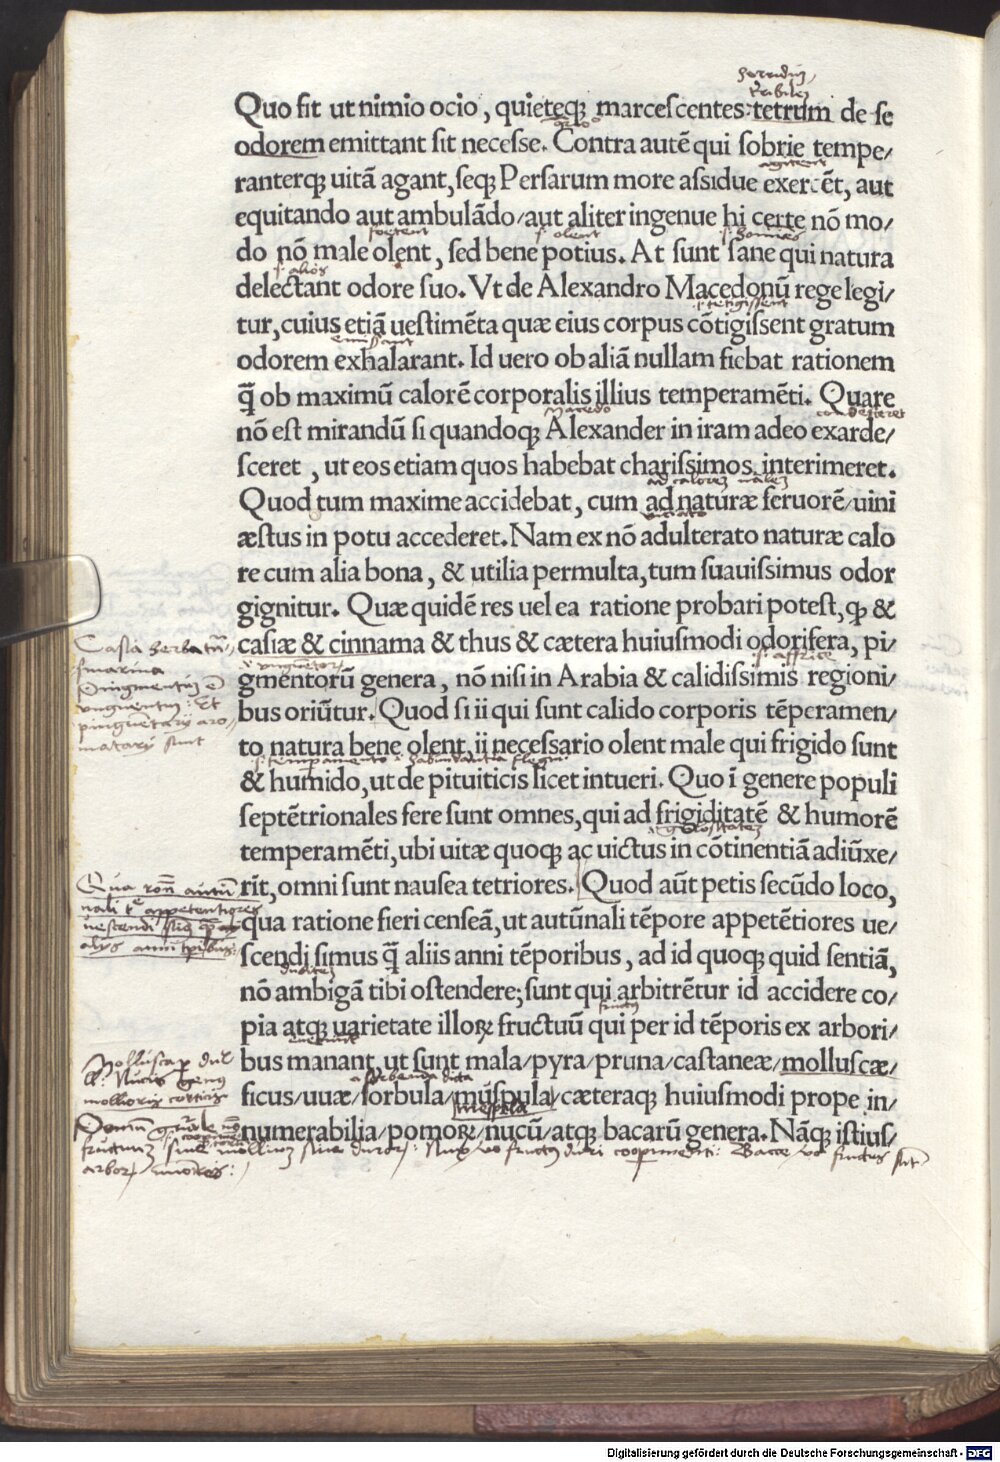 horridum
t̃ribilem
Quo fit ut nimio ocio, quieteqꝫ marcescentes tetrum de se
odorem emittant sit necesse. Contra autē qui sobrie tempe/
ranterqꝫ uitā agant, seqꝫ Persarum more assidue exercēt, aut
equitando aut ambulādo/aut aliter ingenue hi certe nō mo/
foetent s. olent s. homines
do nō male olent, sed bene potius. At sunt sane qui natura
s. alios
delectant odore suo. Vt de Alexandro Macedonū rege legi/
s. tetigissent
tur, cuius etiā uestimēta quæ eius corpus cōtigissent gratum
odorem exhalarant. Id uero ob aliā nullam fiebat rationem
q̄ ob maximū calorē corporalis illius temperamēti. Quare
Macedo
nō est mirandū si quandoqꝫ Alexander in iram adeo exarde/
sceret , ut eos etiam quos habebat charissimos interimeret.
Quod tum maxime accidebat, cum ad naturæ feruorē/uini
æstus in potu accederet. Nam ex nō adulterato naturæ calo
re cum alia bona, & utilia permulta, tum suauissimus odor
gignitur. Quæ quidē res uel ea ratione probari potest, ꝙ &
casiæ & cinnama & thus & cætera huiusmodi odorifera, pi/
s. affrice
gmentorū genera, nō nisi in Arabia & calidissimis regioni/
bus oriūtur. Quod si ii qui sunt calido corporis tēperamen/
to natura bene olent, ii necessario olent male qui frigido sunt
& humido, ut de pituiticis licet intueri. Quo ī genere populi
septētrionales fere sunt omnes, qui ad frigiditatē & humorē
temperamēti, ubi uitæ quoqꝫ ac uictus in cōtinentiā adiūxe/
rīt, omni sunt nausea tetriores. Quod aūt petis secūdo loco,
qua ratione fieri censeā, ut autūnali tēpore appetētiores ue/
scendi simus q̄ aliis anni tēporibus, ad id quoqꝫ quid sentiā,
nō ambigā tibi ostendere; sunt qui arbitrētur id accidere co/
fructus
pia atqꝫ uarietate illoꝝ fructuū qui per id tēporis ex arbori/
bus manant, ut sunt mala/pyra/pruna/castaneæ/molluscæ/
ficus/uuæ/sorbula/mūspula/cæteraqꝫ huiusmodi prope in/
mespila
numerabilia/pomoꝝ/nucū/atqꝫ bacarū genera. Nāqꝫ istius/
Digitalisierung gefördert durch die Deutsche Forschungsgemeinschaft - DFG